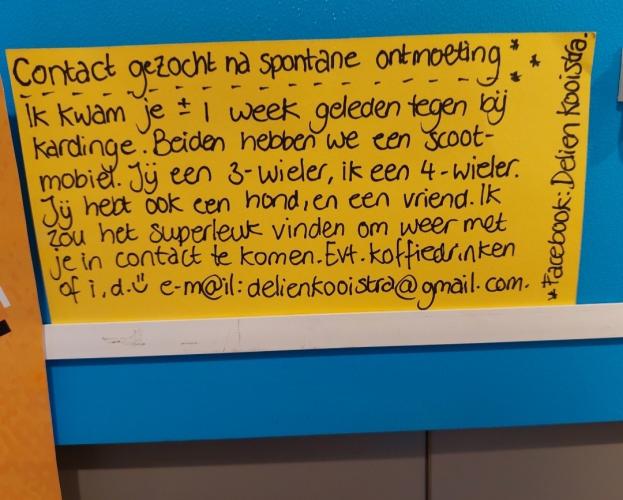 Contact gezocht na spontane ontmoeting
Ik kwam je ± 1 week geleden tegen bij
kardinge. Beiden hebben we een scoot-
mobiel. Jij een 3-wieler, ik een 4-wieler.
Jij hebt ook een hond, en een vriend. Ik
zou het superleuk vinden om weer met
je in contact te komen. Evt. koffiedrinken
of i.d. e-m@il: delienkooistra@gmail.com.
*Facebook: Delien Kooistra.